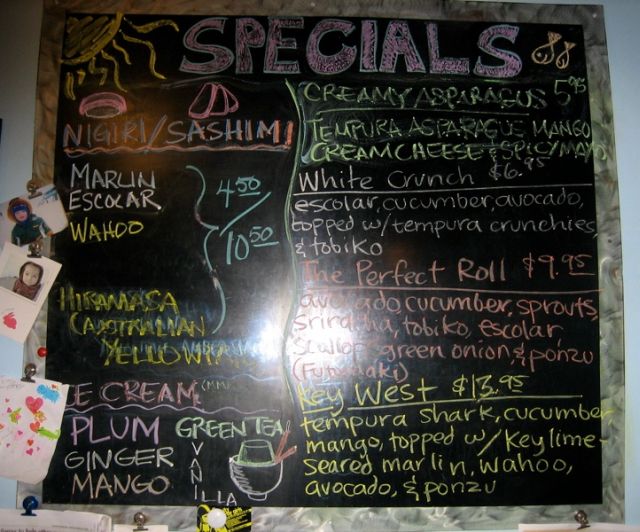 SPECIALS
NIGIRI/SASHIMI
MARLIN
ESCOLAR
WAHOO
4.50/10.50
HIRAMASA
(AUSTRALIAN
ICE CREAM
PLUM
GREEN TEA
GINGER
MANGO
VANILLA
CREAMY ASPARAGUS 5.95
TEMPURA ASPARAGUS MANGO
CREAM CHEESE & SPICY MAYO
White Crunch $6.95
escolar, cucumber, avocado,
topped w/ tempura crunchies,
& tobiko
The Perfect Roll $9.95
avocado, cucumber, sprouts,
sriracha, tobiko, escolar
scallops green onion & ponzu
(Futomaki)
Key West $13.95
tempura shark, cucumber
mango, topped w/ Key lime-
seared marlin, wahoo,
avocado, & ponzu